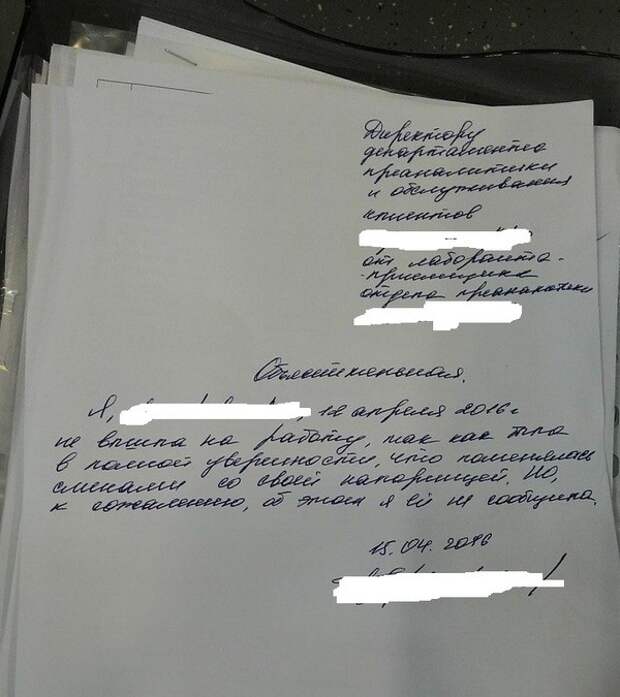 Директору
департамента
преаналитики
и обслуживания
клиентов
от лаборанта-
-приемщика
отдела преаналитики
Объяснительная.
Я, , 12 апреля 2016 г
не вышла на работу, так как была
в полной уверенности, что поменялась
сменами со своей напарницей. Но,
к сожалению, об этом я ей не сообщила.
15.04.2016